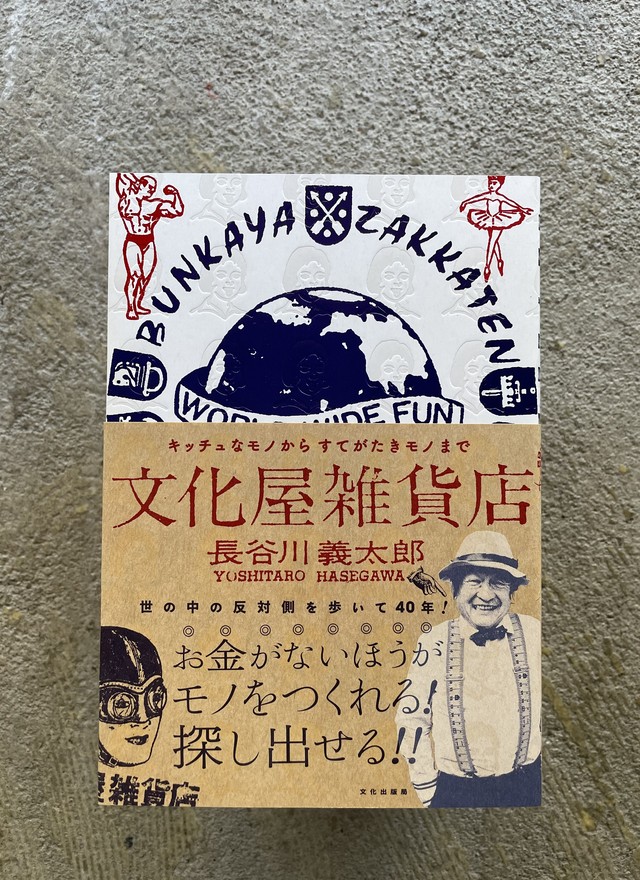 BUNKAYA ZAKKATEN
WORLD WIDE FUN
キッチュなモノから すてがたきモノまで
文化屋雑貨店
長谷川 義太郎
YOSHITARO HASEGAWA
世の中の反対側を歩いて40年!
◎ ◎ ◎ ◎ ◎ ◎ ◎ ◎
お金がないほうが
モノをつくれる!
探し出せる!!
屋雑貨店
文化出版局